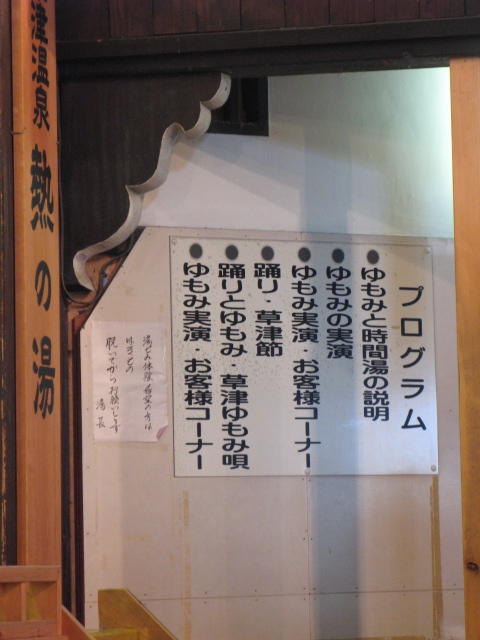 プログラム
●ゆもみと時間湯の説明
●ゆもみの実演
●ゆもみ実演・お客様コーナー
●踊り・草津節
●踊りとゆもみ・草津ゆもみ唄
●ゆもみ実演・お客様コーナー
湯もみ体験希望の方は
はきもの
脱いでからお願いします
湯長
津温泉 熱の湯